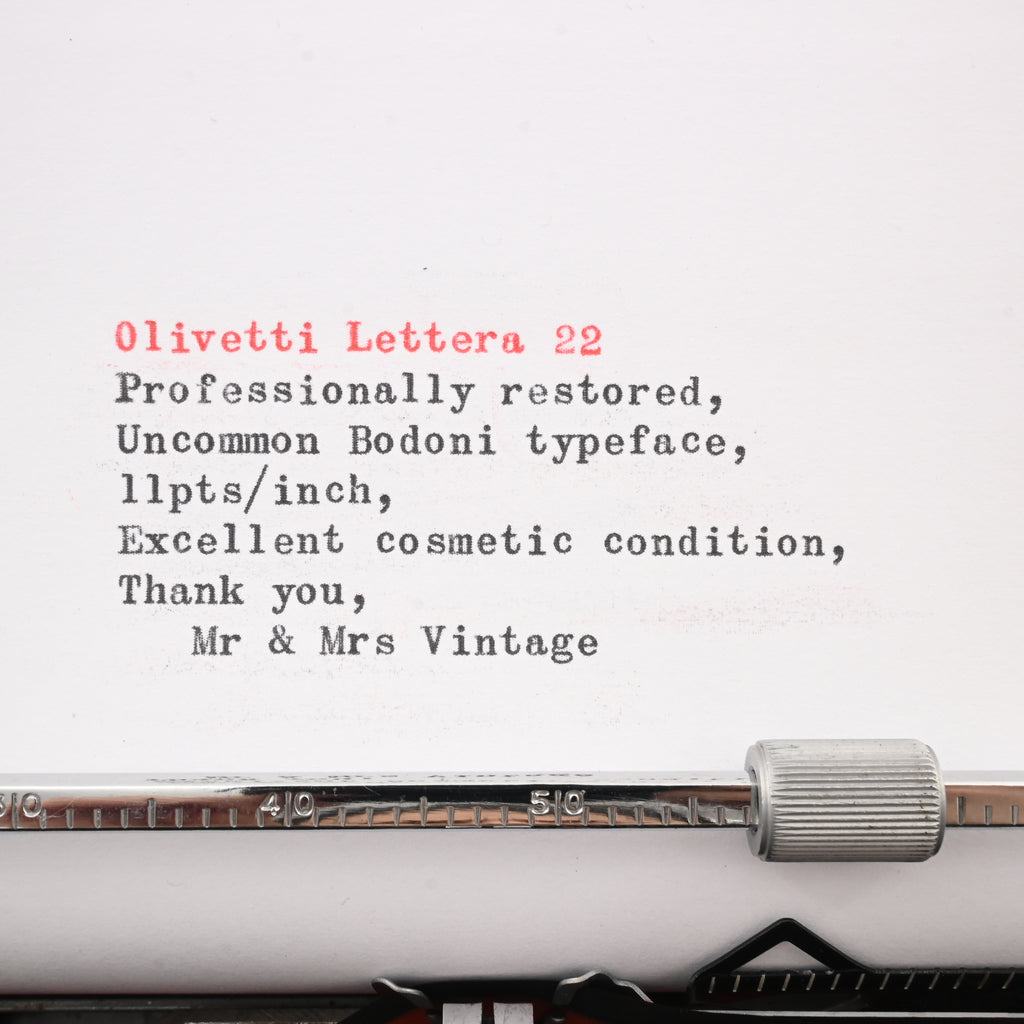 Olivetti Lettera 22
Professionally restored,
Uncommon Bodoni typeface,
11pts/inch,
Excellent cosmetic condition,
Thank you,
Mr & Mrs Vintage
40 50